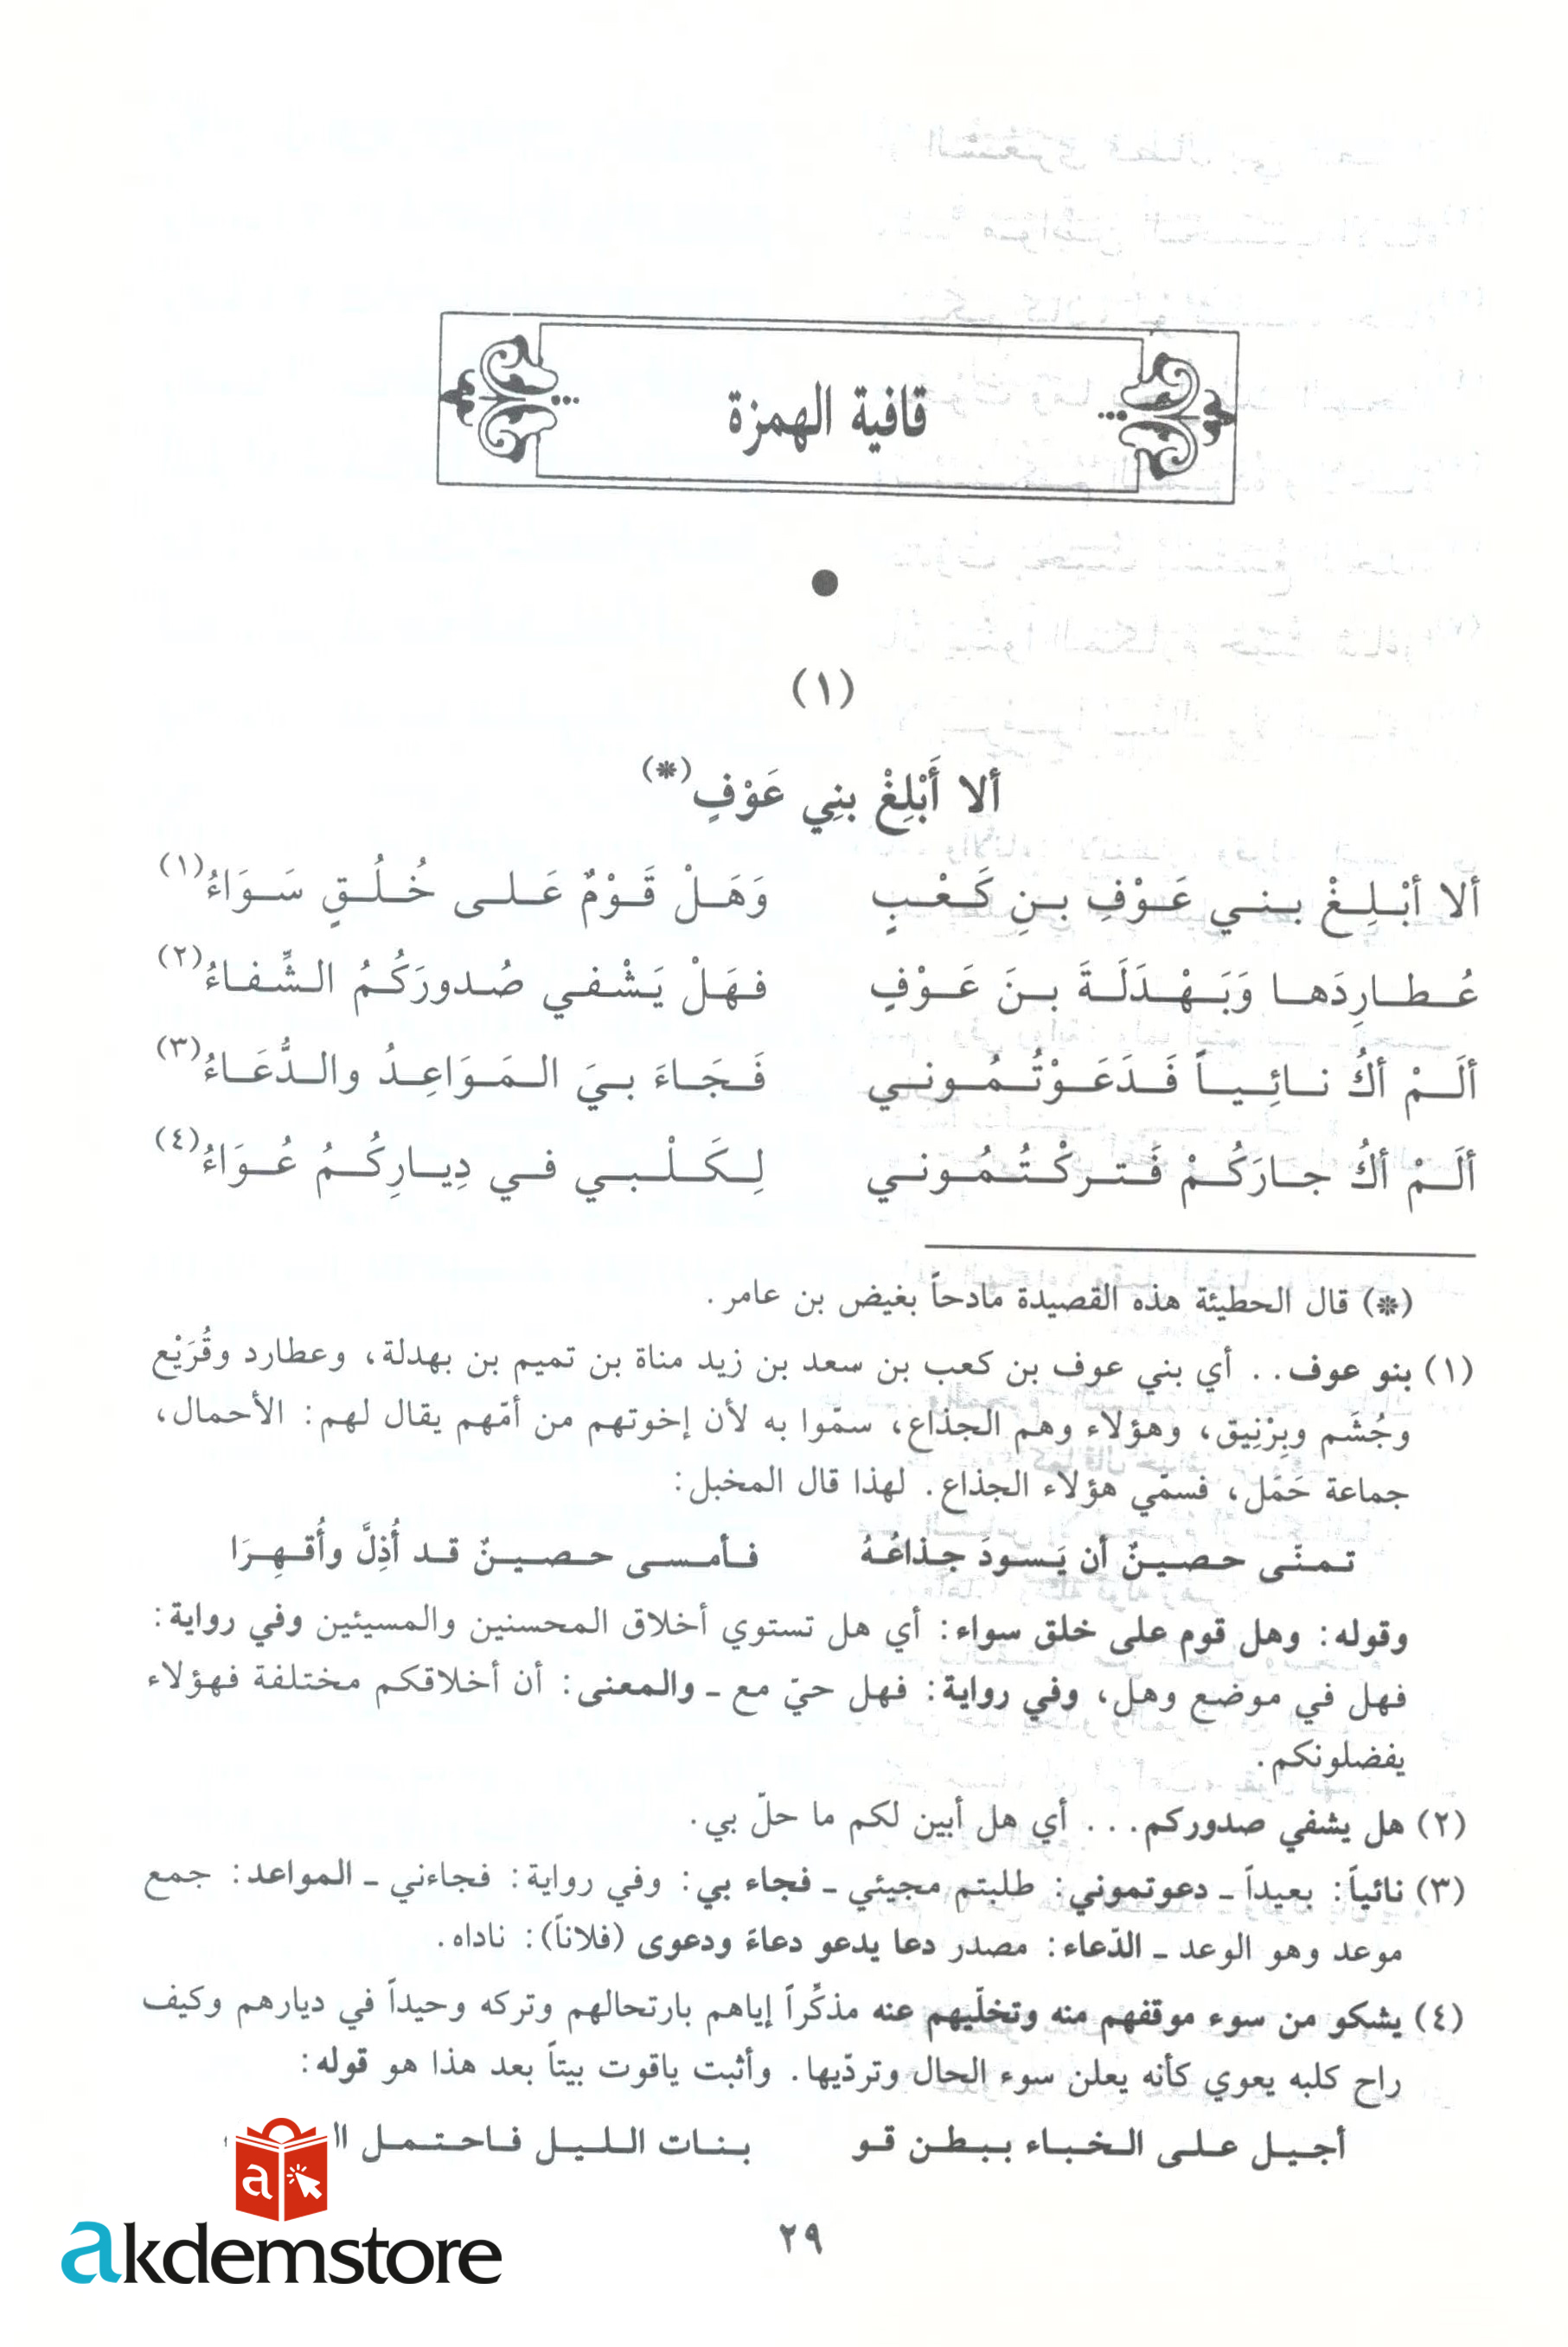 قافية الهمزة
(١)
ألا أَبْلِغْ بنِي عَوْفٍ(*)
ألا أبْلِغْ بني عَوْفِ بنِ كَعْبٍ وَهَلْ قَوْمٌ عَلى خُلُقٍ سَوَاءُ(١)
عُطارِدَها وَبَهْدَلَةَ بنَ عَوْفٍ فهَلْ يَشْفي صُدورَكُمُ الشِّفاءُ(٢)
ألَمْ أكُ نائِياً فَدَعَوْتُمُوني فَجَاءَ بيَ المَوَاعِدُ والدُّعَاءُ(٣)
ألَمْ أكُ جارَكُمْ فَتركْتُمُوني لِكَلْبي في دِيارِكُمُ عُوَاءُ(٤)
(*) قال الحطيئة هذه القصيدة مادحاً بغيض بن عامر.
(١) بنو عوف.. أي بني عوف بن كعب بن سعد بن زيد مناة بن تميم بن بهدلة، وعطارد وقُرَيْع
وجُشَم وبِرْنِيق، وهؤلاء وهم الجذاع، سمّوا به لأن إخوتهم من أمّهم يقال لهم: الأحمال،
جماعة حَمَل، فسمّي هؤلاء الجذاع. لهذا قال المخبل:
تمنّى حصينٌ أن يَسودَ جذاعُهُ فأمسى حصينٌ قد أُذِلَّ وأُقهِرَا
وقوله: وهل قوم على خلق سواء: أي هل تستوي أخلاق المحسنين والمسيئين وفي رواية:
فهل في موضع وهل، وفي رواية: فهل حيّ مع ـ والمعنى: أن أخلاقكم مختلفة فهؤلاء
يفضلونكم.
(٢) هل يشفي صدوركم... أي هل أبين لكم ما حلّ بي.
(٣) نائياً: بعيداً ـ دعوتموني: طلبتم مجيئي ـ فجاء بي: وفي رواية: فجاءني ـ المواعد: جمع
موعد وهو الوعد ـ الدّعاء: مصدر دعا يدعو دعاءً ودعوى (فلاناً): ناداه.
(٤) يشكو من سوء موقفهم منه وتخلّيهم عنه مذكِّراً إياهم بارتحالهم وتركه وحيداً في ديارهم وكيف
راح كلبه يعوي كأنه يعلن سوء الحال وتردّيها. وأثبت ياقوت بيتاً بعد هذا هو قوله:
أجيل على الخباء ببطن قو بنات الليل فاحتمل
٢٩
akdemstore